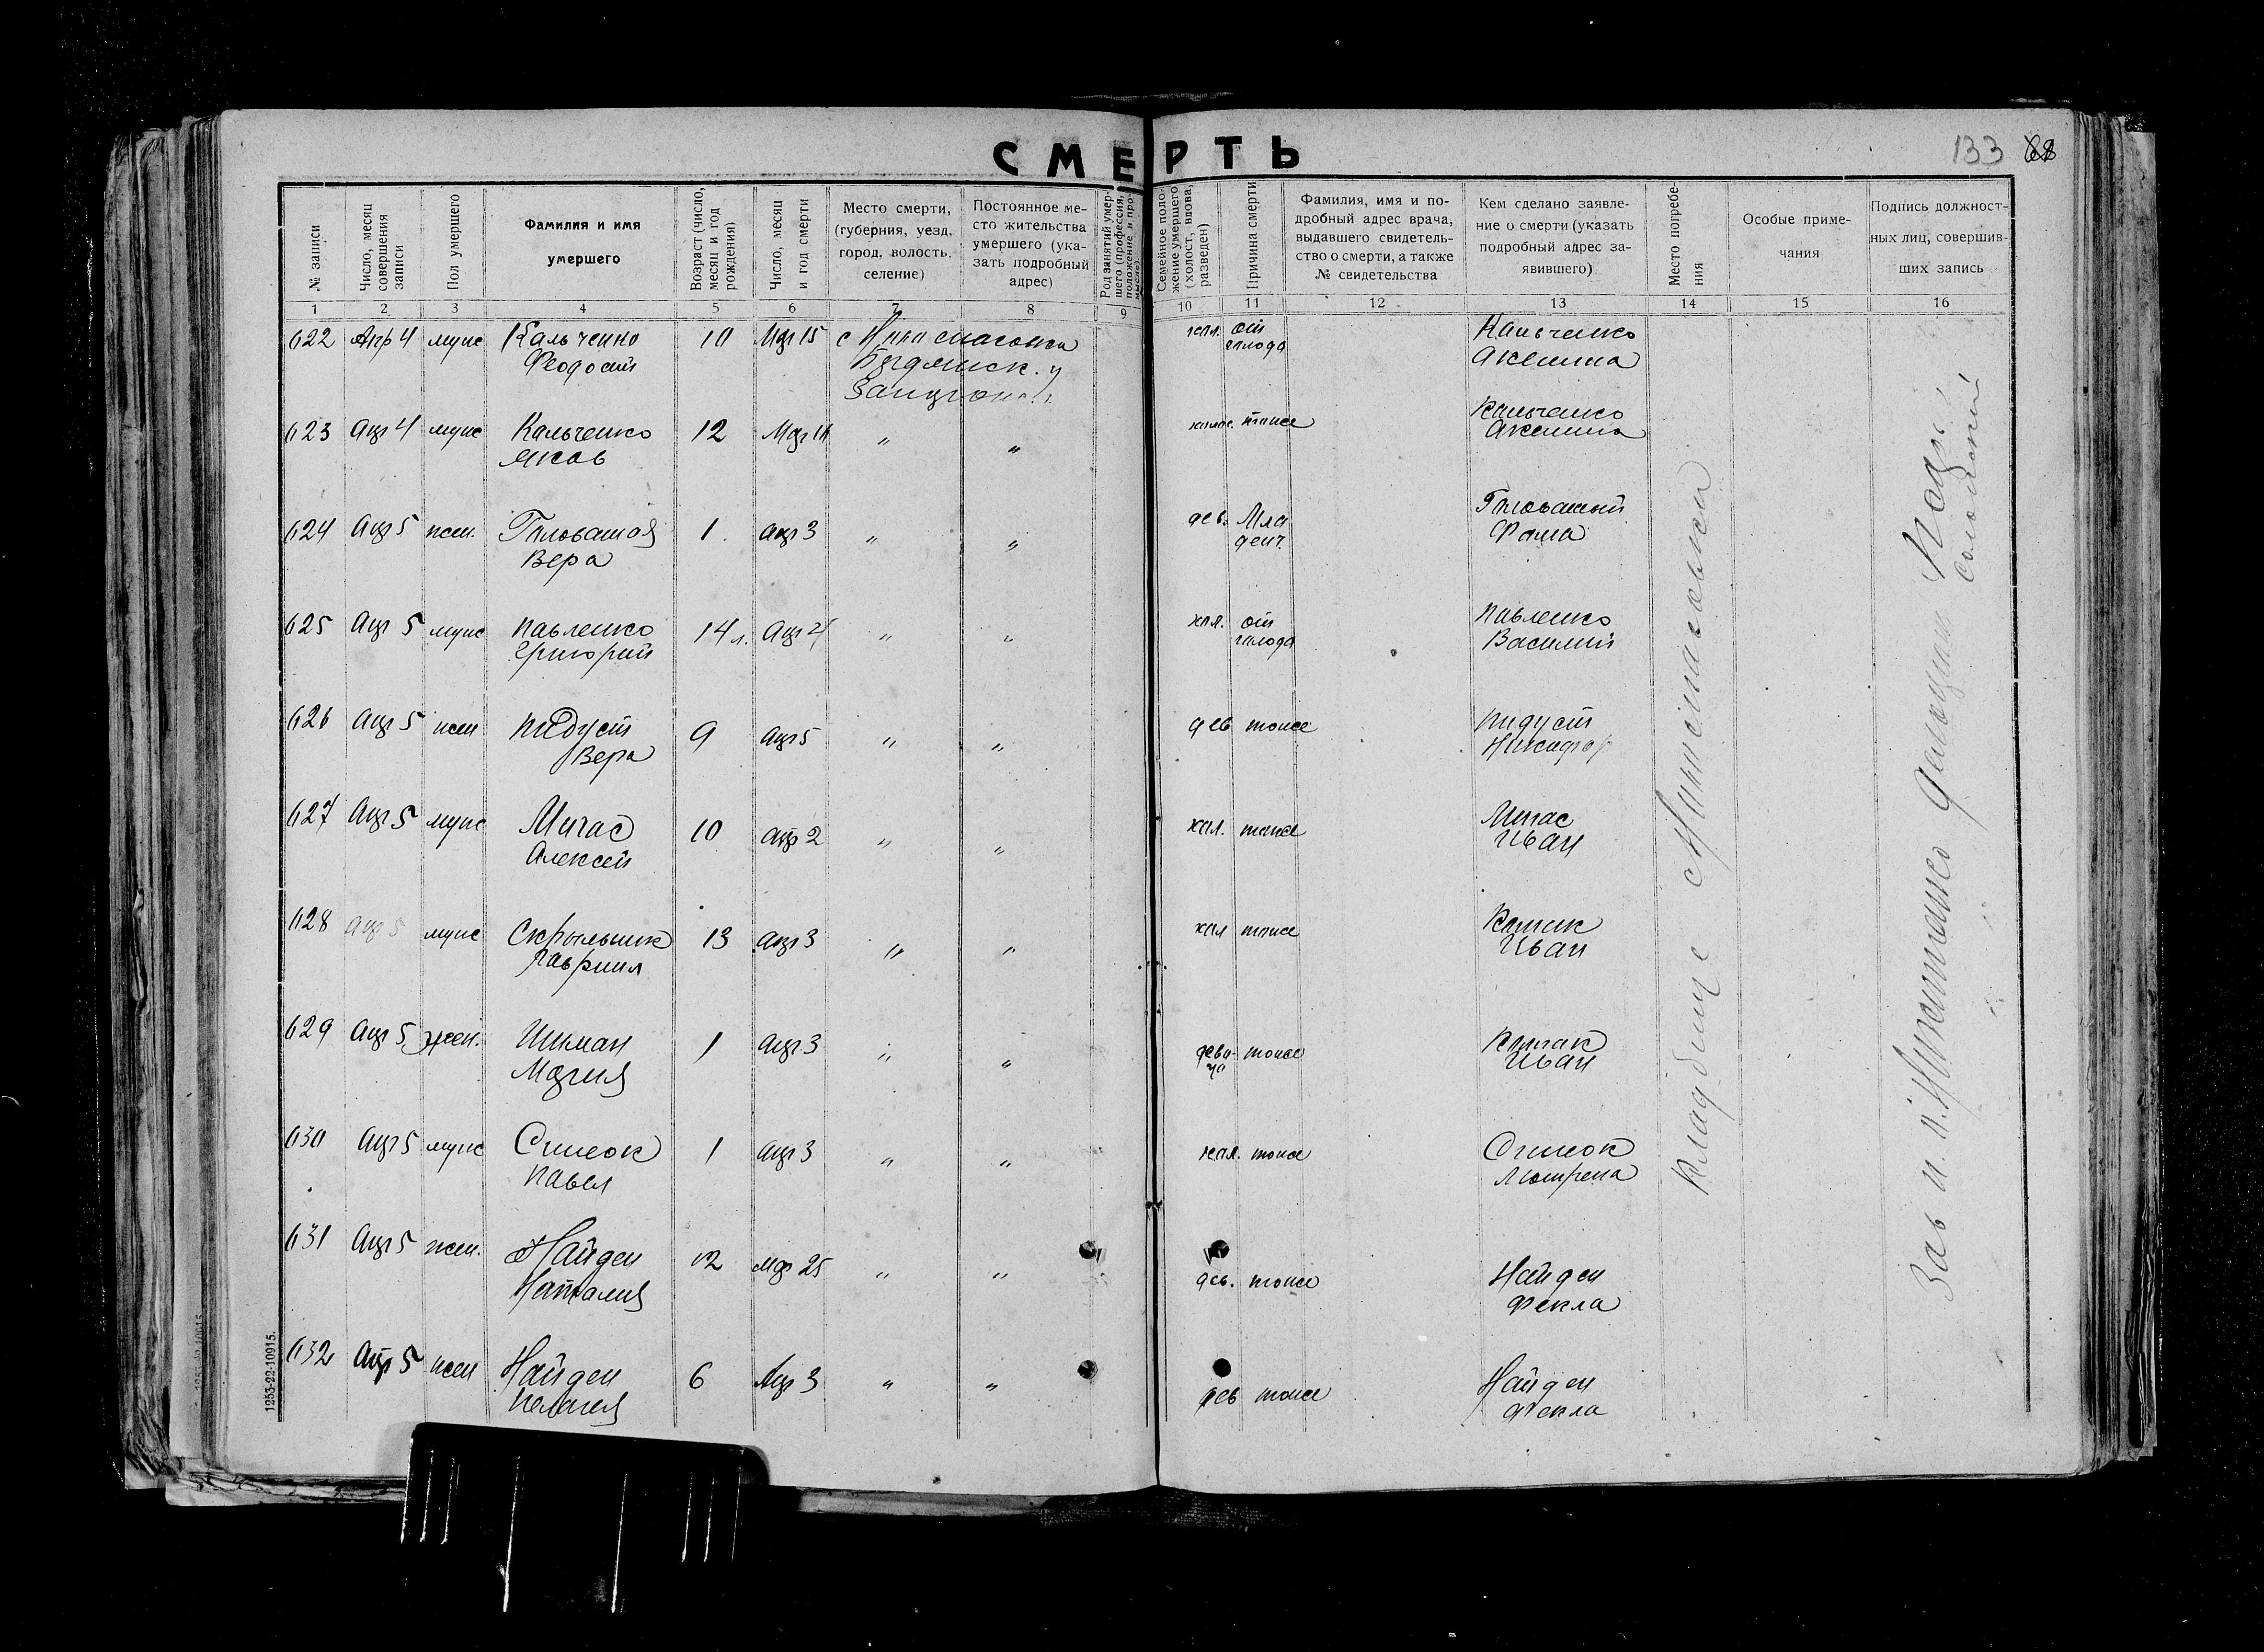 СМЕРТЬ
133
№ записи
Число, месяц совершения записи
Пол умершего
Фамилия и имя умершего
Возраст (число, месяц и год рождения)
Число, месяц и год смерти
Место смерти, (губерния, уезд, город, волость, селение)
Постоянное место жительства умершего (указать подробный адрес)
Род занятий умершего (профессия, положение в промысле)
Семейное положение умершего (холост, вдова, разведен)
Причина смерти
Фамилия, имя и подробный адрес врача, выдавшего свидетельство о смерти, а также № свидетельства
Кем сделано заявление о смерти (указать подробный адрес заявившего)
Место погребения
Особые примечания
Подпись должностных лиц, совершивших запись
1 2 3 4 5 6 7 8 9 10 11 12 13 14 15 16
622 Апр 4 муж Кальченко 10 Мар 15 с хол. от Кальченко
Феодосий голода Аксения
623 Апр 4 муж Кальченко 12 Мар " " тоже Кальченко
Яков Аксения
624 Апр 5 жен. Головатая 1 апр 3 " " дев. Мла Головатый
Вера денч. Фома
625 Апр 5 муж Павленко 14 л. Апр 4 " " хол. от Павленко
Григорий голода Василий
626 Апр 5 жен Пидуст 9 Апр 5 " " дев тоже Пидуст
Вера Никифор
627 Апр 5 муж Мигас 10 апр 2 " " хол. тоже Мигас
Алексей Иван
628 апр 5 муж Скрыльник 13 апр 3 " " хол тоже Иван
Гавриил
629 Апр 5 жен. 1 апр 3 " " деви- тоже Иван
Мария ца
630 Апр 5 муж 1 апр 3 " " хол. тоже
Павел
631 Апр 5 жен. Найден 12 мар 25 " " дев. тоже Найден
Наталия Фекла
632 Апр 5 жен Найден 6 Апр 3 " " дев тоже Найден
Пелагея Фекла
Кладбище с
Зав п.
1253-22-10915.